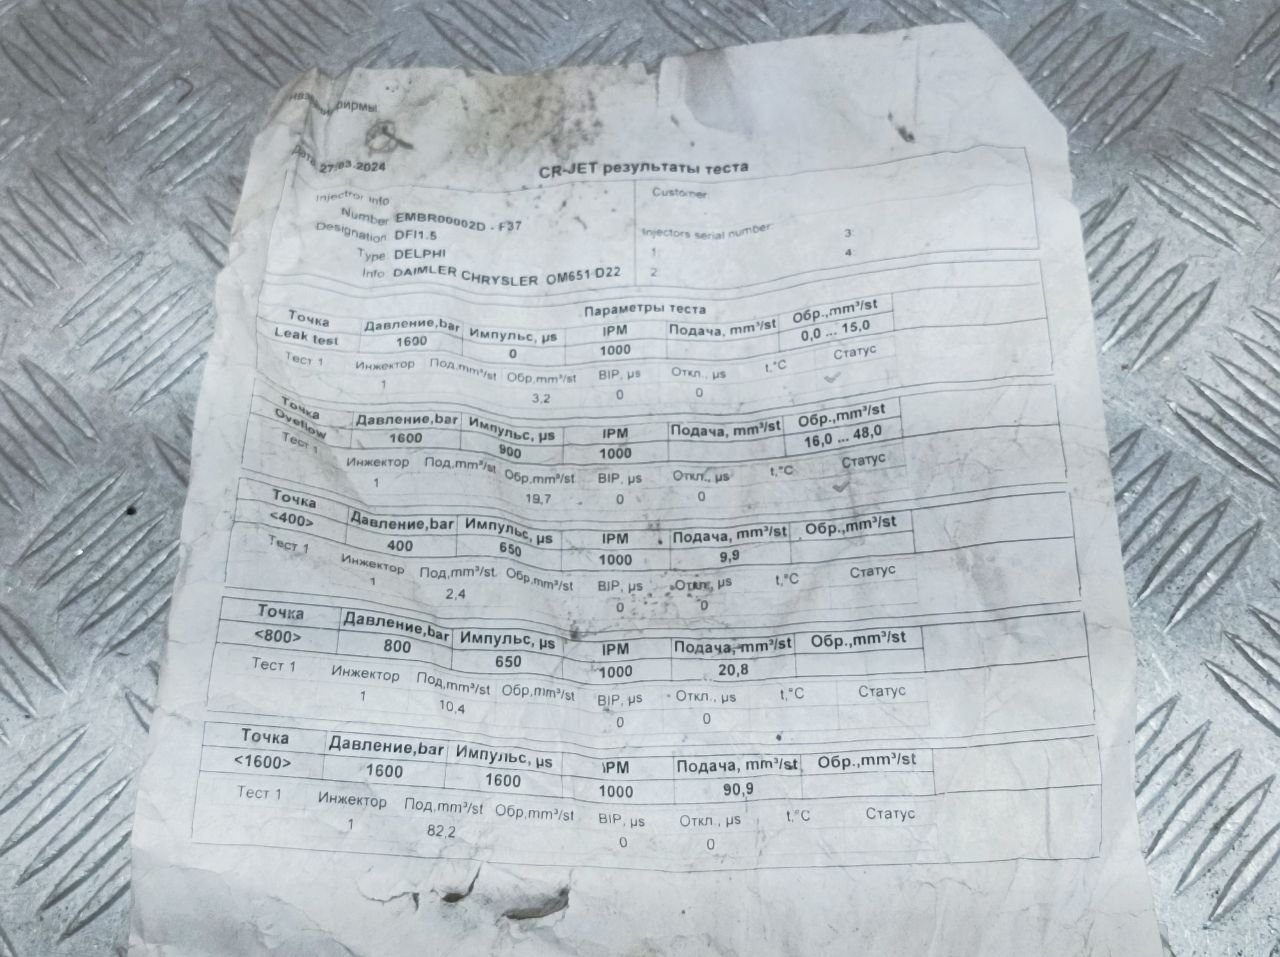 Название фирмы:
Дата 27/03.2024
CR-JET результаты теста
Injectror info
Number EMBR00002D - F37
Designation DFI1.5
Type DELPHI
Info DAIMLER CHRYSLER OM651 D22
Customer
Injectors serial number:
1: 3:
2: 4
Параметры теста
Точка Давление,bar Импульс, µs IPM Подача, mm³/st Обр.,mm³/st
Leak test 1600 0 1000 0,0 ... 15,0
Тест 1 Инжектор Под,mm³/st Обр,mm³/st BIP, µs Откл., µs t,°C Статус
1 3,2 0 0 ✓
Точка Давление,bar Импульс, µs IPM Подача, mm³/st Обр.,mm³/st
Oveflow 1600 900 1000 16,0 ... 48,0
Тест 1 Инжектор Под,mm³/st Обр,mm³/st BIP, µs Откл., µs t,°C Статус
1 19,7 0 0 ✓
Точка Давление,bar Импульс, µs IPM Подача, mm³/st Обр.,mm³/st
<400> 400 650 1000 9,9
Тест 1 Инжектор Под,mm³/st Обр,mm³/st BIP, µs Откл., µs t,°C Статус
1 2,4 0 0
Точка Давление,bar Импульс, µs IPM Подача, mm³/st Обр.,mm³/st
<800> 800 650 1000 20,8
Тест 1 Инжектор Под,mm³/st Обр,mm³/st BIP, µs Откл., µs t,°C Статус
1 10,4 0 0
Точка Давление,bar Импульс, µs IPM Подача, mm³/st Обр.,mm³/st
<1600> 1600 1600 1000 90,9
Тест 1 Инжектор Под,mm³/st Обр,mm³/st BIP, µs Откл., µs t,°C Статус
1 82,2 0 0